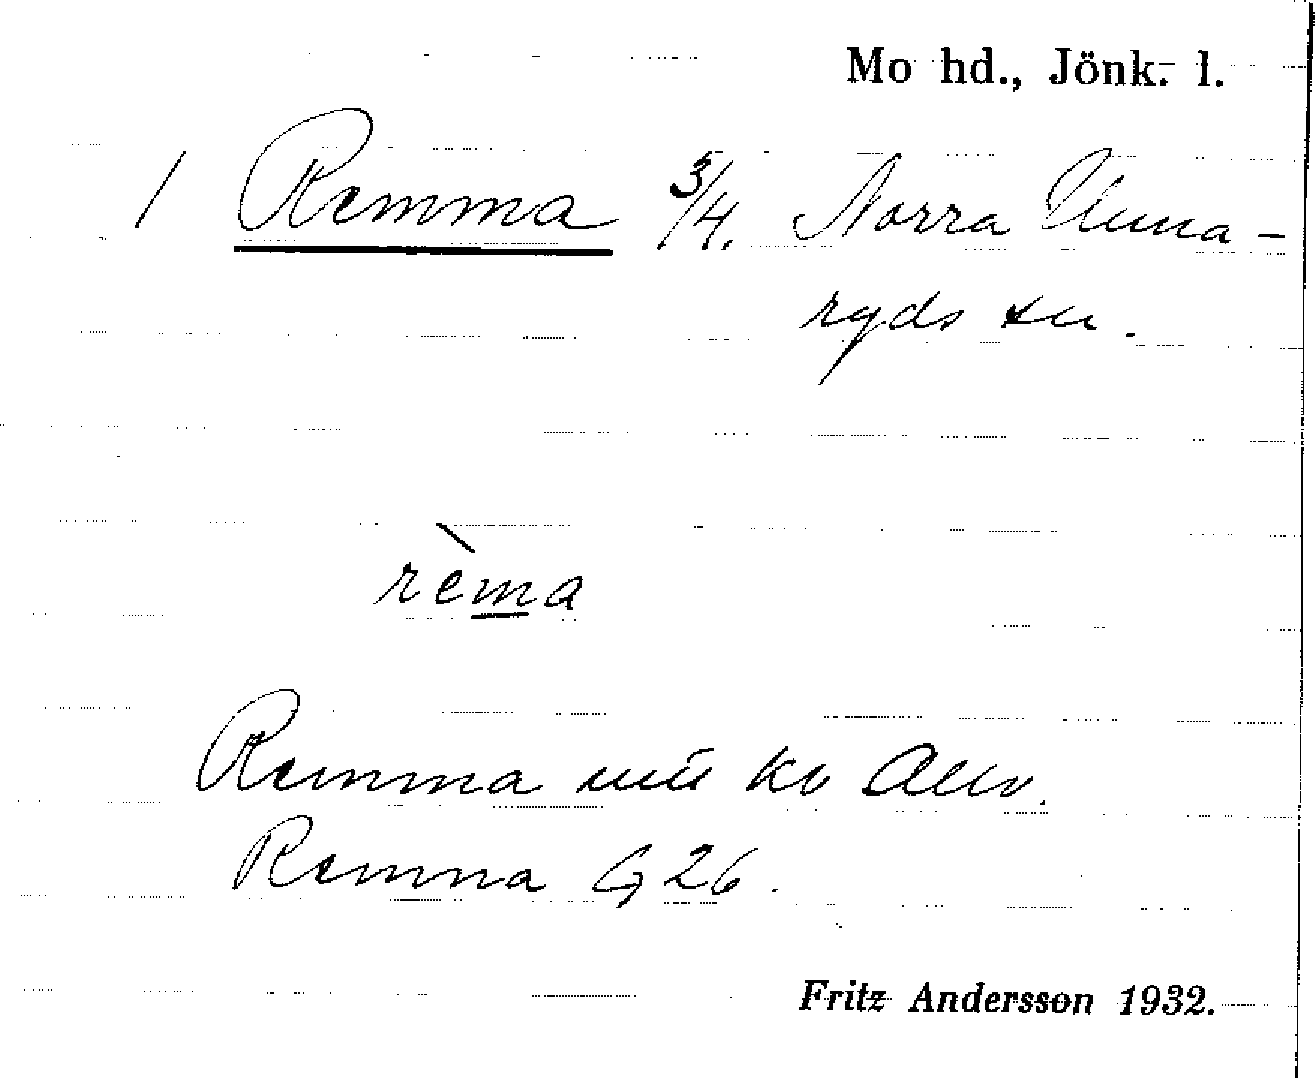 Mo hd., Jönk. l.
1 Remma 3/4. Norra Unna-
ryds sn.
rèma
Remma
Remma G 26.
Fritz Andersson 1932.